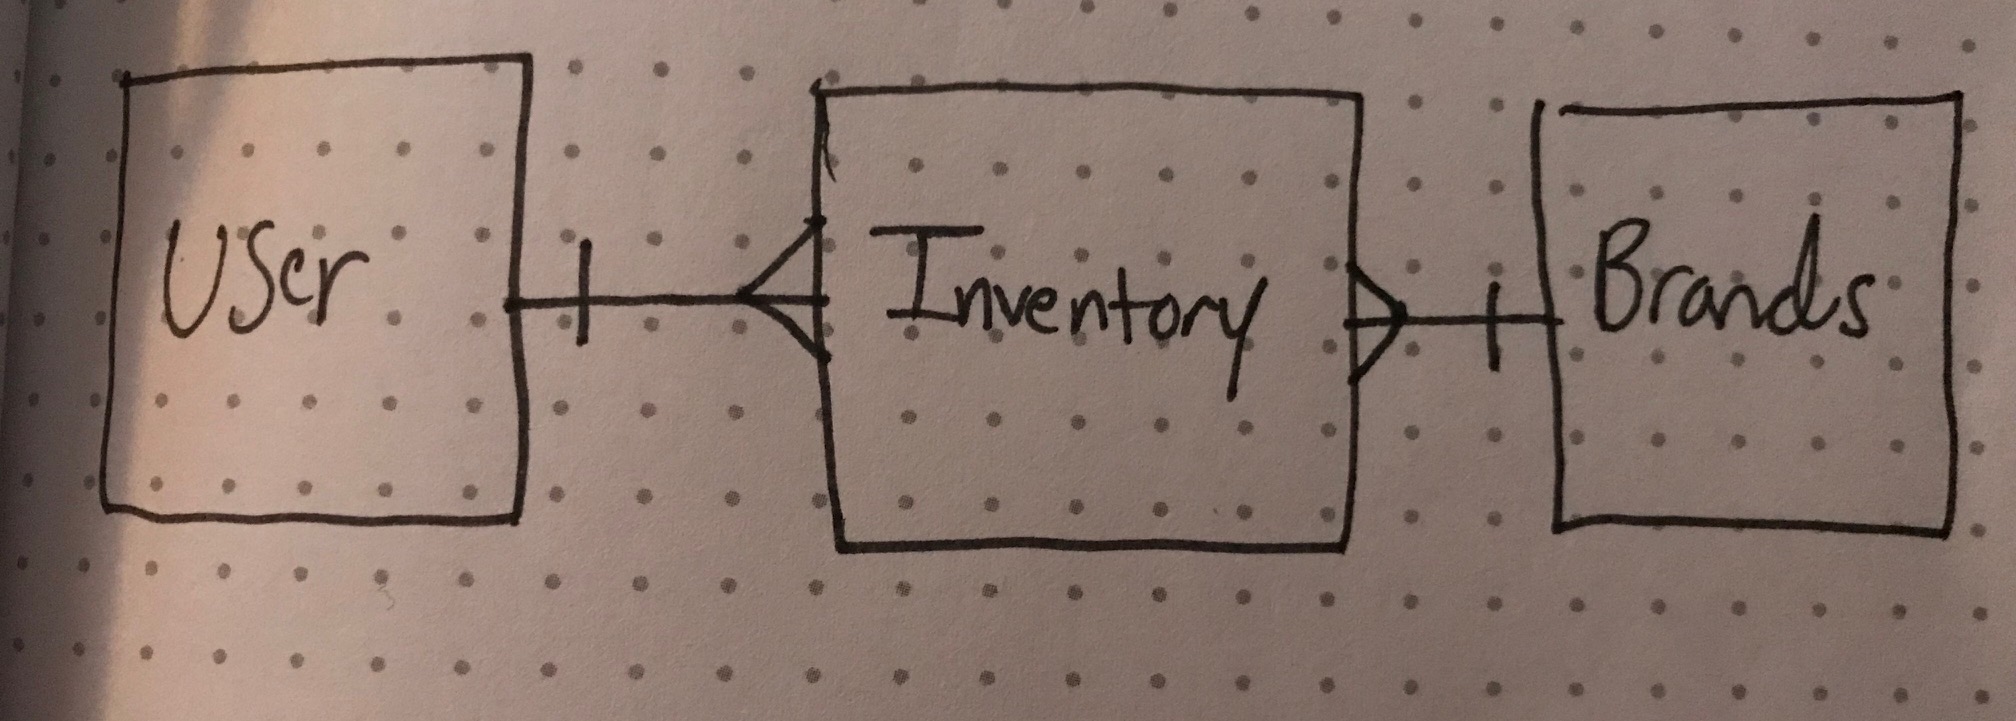 User
Inventory
Brands